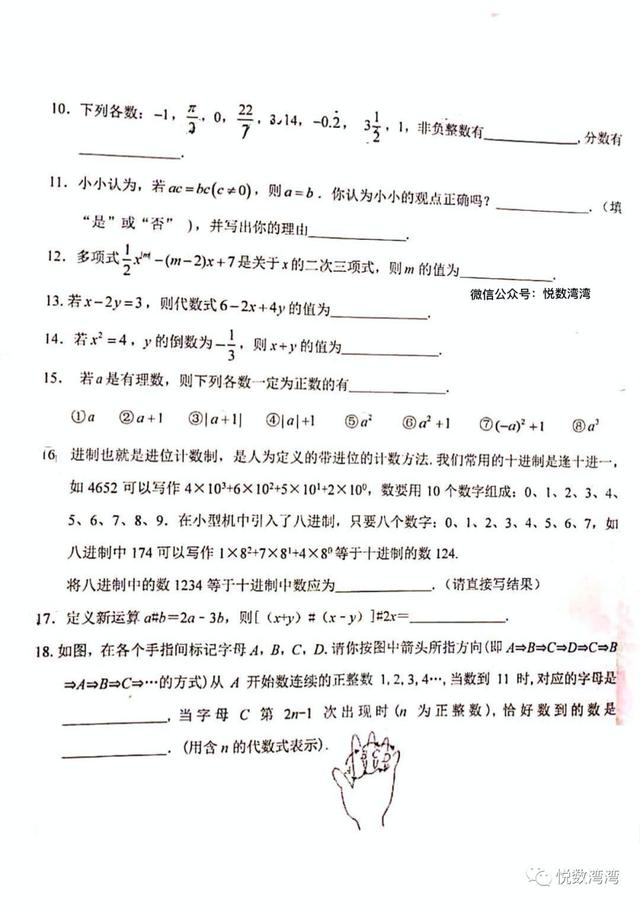 10. 下列各数：-1，π/2，0，22/7，3.14，-0.2̇，3 1/2，1，非负整数有____________，分数有
____________．
11. 小小认为，若 ac＝bc(c≠0)，则 a＝b．你认为小小的观点正确吗？____________．（填
“是”或“否”），并写出你的理由____________．
12. 多项式 1/2 x^|m| −(m−2)x+7 是关于 x 的二次三项式，则 m 的值为____________．
微信公众号：悦数湾湾
13. 若 x−2y＝3，则代数式 6−2x+4y 的值为____________．
14. 若 x²＝4，y 的倒数为 −1/3，则 x+y 的值为____________．
15. 若 a 是有理数，则下列各数一定为正数的有____________．
①a ②a+1 ③|a+1| ④|a|+1 ⑤a² ⑥a²+1 ⑦(−a)²+1 ⑧a³
16 进制也就是进位计数制，是人为定义的带进位的计数方法.我们常用的十进制是逢十进一，
如 4652 可以写作 4×10³+6×10²+5×10¹+2×10⁰，数要用 10 个数字组成：0、1、2、3、4、
5、6、7、8、9．在小型机中引入了八进制，只要八个数字：0、1、2、3、4、5、6、7，如
八进制中 174 可以写作 1×8²+7×8¹+4×8⁰ 等于十进制的数 124.
将八进制中的数 1234 等于十进制中数应为____________．（请直接写结果）
17. 定义新运算 a#b＝2a﹣3b，则[（x+y）#（x﹣y）]#2x＝____________．
18. 如图，在各个手指间标记字母 A，B，C，D.请你按图中箭头所指方向(即 A⇒B⇒C⇒D⇒C⇒B
⇒A⇒B⇒C⇒…的方式)从 A 开始数连续的正整数 1,2,3,4…,当数到 11 时,对应的字母是
____________，当字母 C 第 2n-1 次出现时(n 为正整数),恰好数到的数是
____________．(用含 n 的代数式表示).
B C D
悦数湾湾